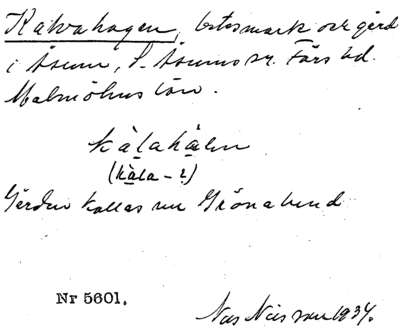 Kalvahagen, betesmark och gärd
i Åsum, S. Åsums sn. Färs hd.
Malmöhus län.
kàlahàen
(kàla-?)
Gärden kallas nu Grönalund
Nr 5601.
Nils Nilsson 1934.